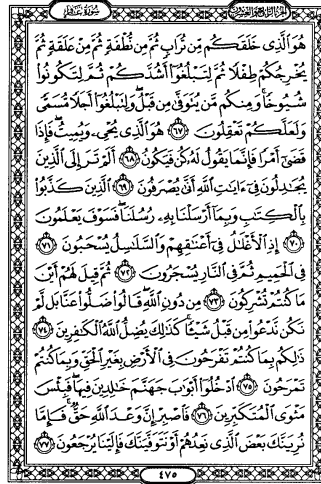 الجزء الرابع والعشرون
سورة غافر
هُوَ ٱلَّذِى خَلَقَكُم مِّن تُرَابٍ ثُمَّ مِن نُّطْفَةٍ ثُمَّ مِنْ عَلَقَةٍ ثُمَّ
يُخْرِجُكُمْ طِفْلًا ثُمَّ لِتَبْلُغُوٓا۟ أَشُدَّكُمْ ثُمَّ لِتَكُونُوا۟
شُيُوخًا ۚ وَمِنكُم مَّن يُتَوَفَّىٰ مِن قَبْلُ ۖ وَلِتَبْلُغُوٓا۟ أَجَلًا مُّسَمًّى
وَلَعَلَّكُمْ تَعْقِلُونَ ﴿٦٧﴾ هُوَ ٱلَّذِى يُحْىِۦ وَيُمِيتُ ۖ فَإِذَا
قَضَىٰٓ أَمْرًا فَإِنَّمَا يَقُولُ لَهُۥ كُن فَيَكُونُ ﴿٦٨﴾ أَلَمْ تَرَ إِلَى ٱلَّذِينَ
يُجَـٰدِلُونَ فِىٓ ءَايَـٰتِ ٱللَّهِ أَنَّىٰ يُصْرَفُونَ ﴿٦٩﴾ ٱلَّذِينَ كَذَّبُوا۟
بِٱلْكِتَـٰبِ وَبِمَآ أَرْسَلْنَا بِهِۦ رُسُلَنَا ۖ فَسَوْفَ يَعْلَمُونَ
﴿٧٠﴾ إِذِ ٱلْأَغْلَـٰلُ فِىٓ أَعْنَـٰقِهِمْ وَٱلسَّلَـٰسِلُ يُسْحَبُونَ ﴿٧١﴾
فِى ٱلْحَمِيمِ ثُمَّ فِى ٱلنَّارِ يُسْجَرُونَ ﴿٧٢﴾ ثُمَّ قِيلَ لَهُمْ أَيْنَ
مَا كُنتُمْ تُشْرِكُونَ ﴿٧٣﴾ مِن دُونِ ٱللَّهِ ۖ قَالُوا۟ ضَلُّوا۟ عَنَّا بَل لَّمْ
نَكُن نَّدْعُوا۟ مِن قَبْلُ شَيْـًٔا ۚ كَذَٰلِكَ يُضِلُّ ٱللَّهُ ٱلْكَـٰفِرِينَ ﴿٧٤﴾
ذَٰلِكُم بِمَا كُنتُمْ تَفْرَحُونَ فِى ٱلْأَرْضِ بِغَيْرِ ٱلْحَقِّ وَبِمَا كُنتُمْ
تَمْرَحُونَ ﴿٧٥﴾ ٱدْخُلُوٓا۟ أَبْوَٰبَ جَهَنَّمَ خَـٰلِدِينَ فِيهَا ۖ فَبِئْسَ
مَثْوَى ٱلْمُتَكَبِّرِينَ ﴿٧٦﴾ فَٱصْبِرْ إِنَّ وَعْدَ ٱللَّهِ حَقٌّ ۚ فَإِمَّا
نُرِيَنَّكَ بَعْضَ ٱلَّذِى نَعِدُهُمْ أَوْ نَتَوَفَّيَنَّكَ فَإِلَيْنَا يُرْجَعُونَ ﴿٧٧﴾
٤٧٥